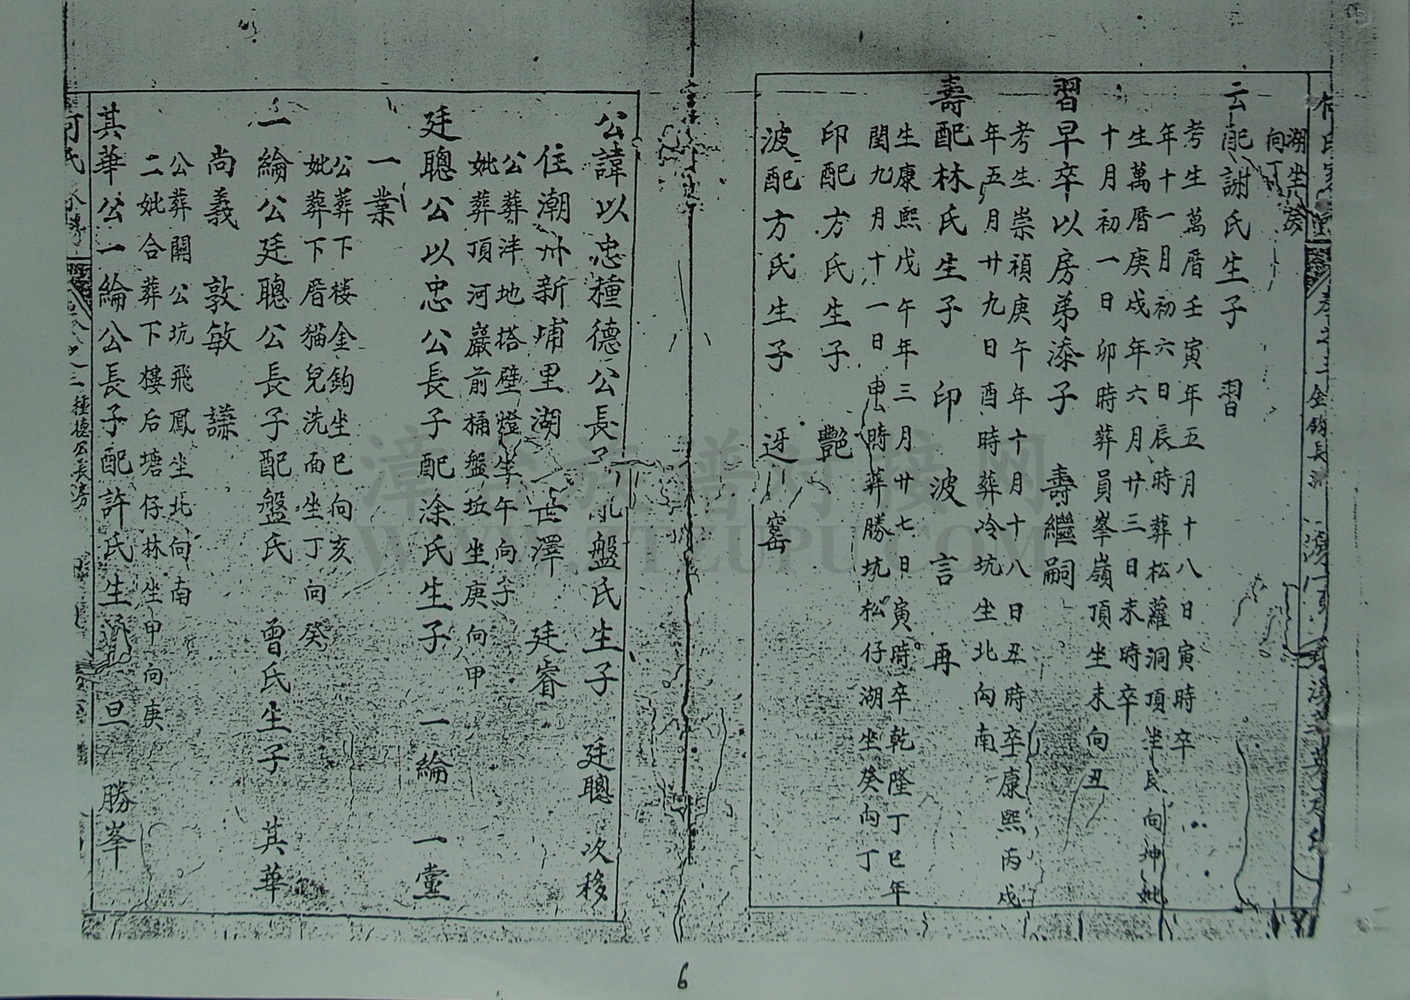 湖坐癸
向丁
云配謝氏生子 習
考生萬曆壬寅年五月十八日寅時卒
年十一月初六日辰時葬松蘿洞頂坐艮向坤妣
生萬曆庚戌年六月廿三日未時卒
十月初一日卯時葬員峯嶺頂坐未向丑
習早卒以房弟添子 壽繼嗣
考生崇禎庚午年十月十八日丑時卒康熙丙戌
年五月廿九日酉時葬冷坑坐北向南
壽配林氏生子 印 波 言 再
生康熙戊午年三月廿七日寅時卒乾隆丁巳年
閏九月十一日申時葬勝坑松仔湖坐癸向丁
印配方氏生子 艷
波配方氏生子 迓 窰
公諱以忠種德公長子 盤氏生子 廷聰 次移
住潮州新埔里湖 世澤 廷睿
公葬洋地塔壁燈坐午向子
妣葬頂河巖前桶盤坵坐庚向甲
廷聰公以忠公長子配涂氏生子 一綸 一堂
一業
公葬下楼金鈎坐巳向亥
妣葬下厝貓兒洗面坐丁向癸
一綸公廷聰公長子配盤氏 曾氏生子 其華
尚義 敦敏 謙
公葬開公坑飛鳳坐北向南
二妣合葬下樓后塘仔林坐甲向庚
其華公一綸公長子配許氏生 旦 勝峯
何氏 三種德公長房
6
漳州族谱对接网
WWW.ZTZUPU.COM